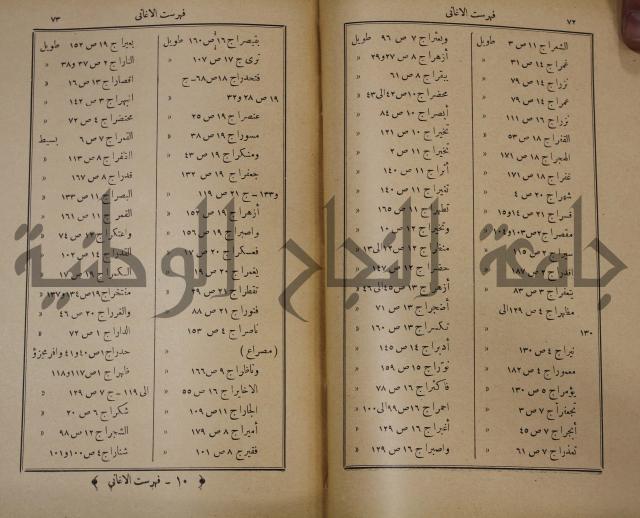 ٧٢
فهرست الاغانى
الشعراج ١١ ص ٣ طويل
غمراج ١٤ ص ٣١ »
نزراج ١٤ ص ٧٩ »
عمراج ١٤ ص ٧٩ »
نزراج ١٦ ص ١١١ »
القفراج ١٨ ص ٥٣ »
الهجراج ١٨ ص ١٧١ »
غفراج ١٨ ص ١٧١ »
شهراج ٢٠ ص ٤ »
قسراج ٢١ ص ١٤و١٥ »
سيراج ٢ ص ١١٥
اقدراج ٢ ص ١٨٧
يتعفراج ٣ ص ٨٣ »
مظهراج ٤ ص ١٢٩الى
١٣٠ »
نيراج ٤ ص ١٣٠ »
معموراج ٤ ص ١٨٢ »
يؤمراج ٥ ص ١٣٠ »
نجعفراج ٧ ص ٣ »
أبجراج ٧ ص ٤٥ »
تعذراج ٧ ص ٦١ »
ويعثراج ٧ ص ٩٦ طويل
أزهراج ٨ ص ٢٧و٢٩ »
يبقراج ٨ ص ٦١ »
محضراج ١٠ص٤٢الى٤٣ »
أبصراج ١٠ ص ٨٤ »
تخيراج ١٠ ص ١٢١ »
تخيراج ١١ ص ٢ »
أثراج ١١ ص ١٤٠ »
تغيراج ١١ ص ١٤٠ »
تطهراج ١١ ص ١٦٥ »
وتخيراج ١٢ ص ١٠ »
حضراج ١٢ ص ١٤٧
أزهراج ١٣ ص٤٥الى٤٦ »
أضجراج ١٣ ص ٧١ »
تكسراج ١٣ ص ١٦٠ »
أدبراج ١٤ ص ١٤٥ »
نوراج ١٥ ص ١٥٩ »
فاكثراج ١٦ ص ٧٨ »
احمراج ١٦ص٩٩الى١٠٠ »
أغبراج ١٦ ص ١٢٩ »
واصبراج ١٦ ص ١٢٩ »
فهرست الاغانى
٧٣
بقيصراج ١٦ ص ١٦٠ طويل
ترى ج ١٧ ص ١٠٧ »
فتحدراج ١٨ص٦٨-ج
١٩ ص ٢٨ و٣٢ »
عنصراج ١٩ ص ٢٥ »
مسوراج ١٩ ص ٣٨ »
ومنكراج ١٩ ص ٤٣ »
جعفراج ١٩ ص ١٣٢
و١٣٣-ج ٢١ ص ١١٩ »
أزهراج ١٩ ص ١٥٢ »
واصبراج ١٩ ص ١٥٦ »
فعسكراج ٢٠ ص ١٧
يغمراج ٢٠ ص ١٩
تقطراج ٢١ ص ٢٩
فتوراج ٢١ ص ٨٨
ناصراج ٤ ص ١٥٣
(مصراع) »
وناظراج ٩ ص١٦٦ »
الاخابراج ١٦ ص ٥٥ »
الجاراج ١١ ص١٠٩ »
أميراج ٨ ص ١٧٩ »
فقيرج ٨ ص ١٠١ »
بعيراج ١٩ ص ١٥٢ طويل
الناراج ٢ ص ٣٧ و٣٨ »
انحصاراج ١٣ ص ١٦ »
النهراج ٣ ص ١٤٢ »
محتضراج ٤ ص ٧٢ »
القمراج ٧ ص ٦ بسيط
الثغراج ٨ ص ١١٣ »
قدراج ٨ ص ١٦٧ »
البصراج ١١ ص ١٣٣ »
القمرج ١١ ص ١٦١ »
واعتكراج ١٢ ص ٧٤ »
القدراج ١٤ ص ١٠٢
الكمراج ١٩ ص ١٧
منتخراج١٩ص١٣٤و١٣٧ »
والغرراج ٢٠ ص ٤٦ »
الداراج ١ ص ٧٢ »
حدراج١ص٤٠و٤١ وافرمجزؤ
ظهراج ١ص١١٧و١١٨
الى ١١٩-ج ٧ ص ١٢٩ »
شكراج ٦ ص ٢٠ »
الشجراج ١٢ ص ٩٨ »
شناراج٤ص١٠٠و١٠١ »
﴿ ١٠ - فهرست الاغانى ﴾
جامعة النجاح الوطنية